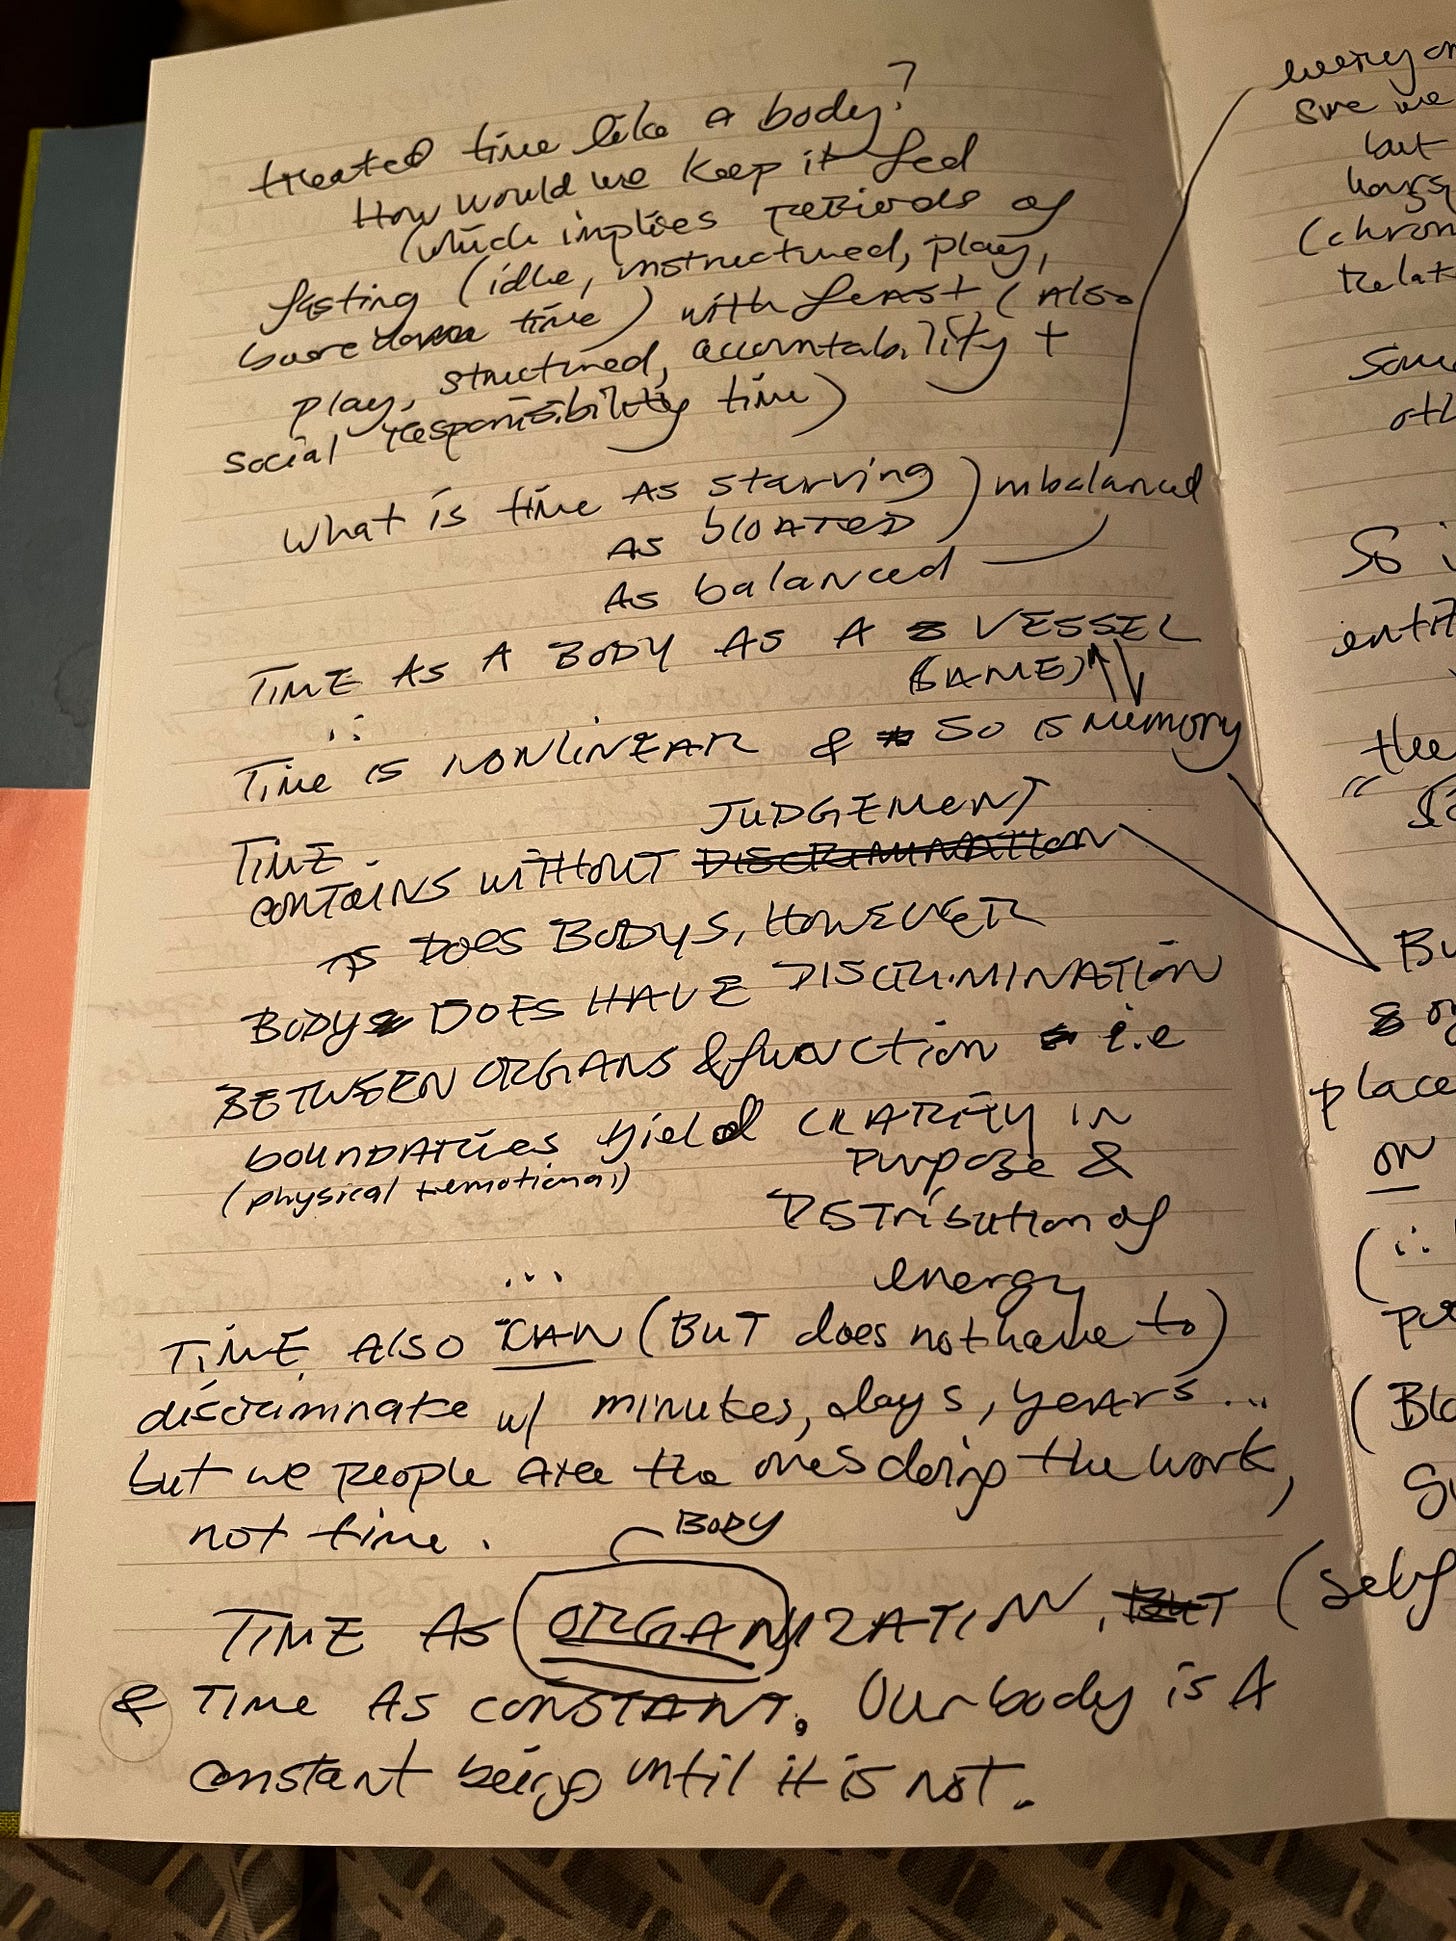 treated time like a body?
How would we keep it fed
(which implies periods of
fasting (idle, unstructured, play,
time) with feast (also
play, structured, accountability +
social responsibility time)
What is time As starving ) imbalanced
As bloATED
As balanced
TIME AS A BODY AS A VESSEL
(SAME)
∴
Time is NONLINEAR & So is memory
JUDGEMENT
TIME
CONTAINS WITHOUT DISCRIMINATION
AS DOES BODYS, HOWEVER
BODY DOES HAVE DISCRIMINATION
BETWEEN ORGANS & function i.e
boundaries yield CLARITY IN
(physical + emotional) purpose &
DISTribution of
energy
...
TIME Also CAN (BUT does not have to)
discriminate w/ minutes, days, years...
but we people are the ones doing the work,
not time.
BODY
TIME AS ORGANIZATION, BUT (self
& TIME AS CONSTANT. Our body is A
constant being until it is not.
sure we
but
(chron
Relat
Some
oth
So i
entit
"the
Bu
place
on
(∴
(Blo